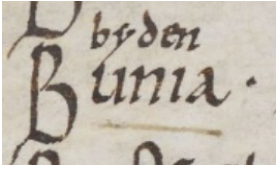 byden
Bunia.